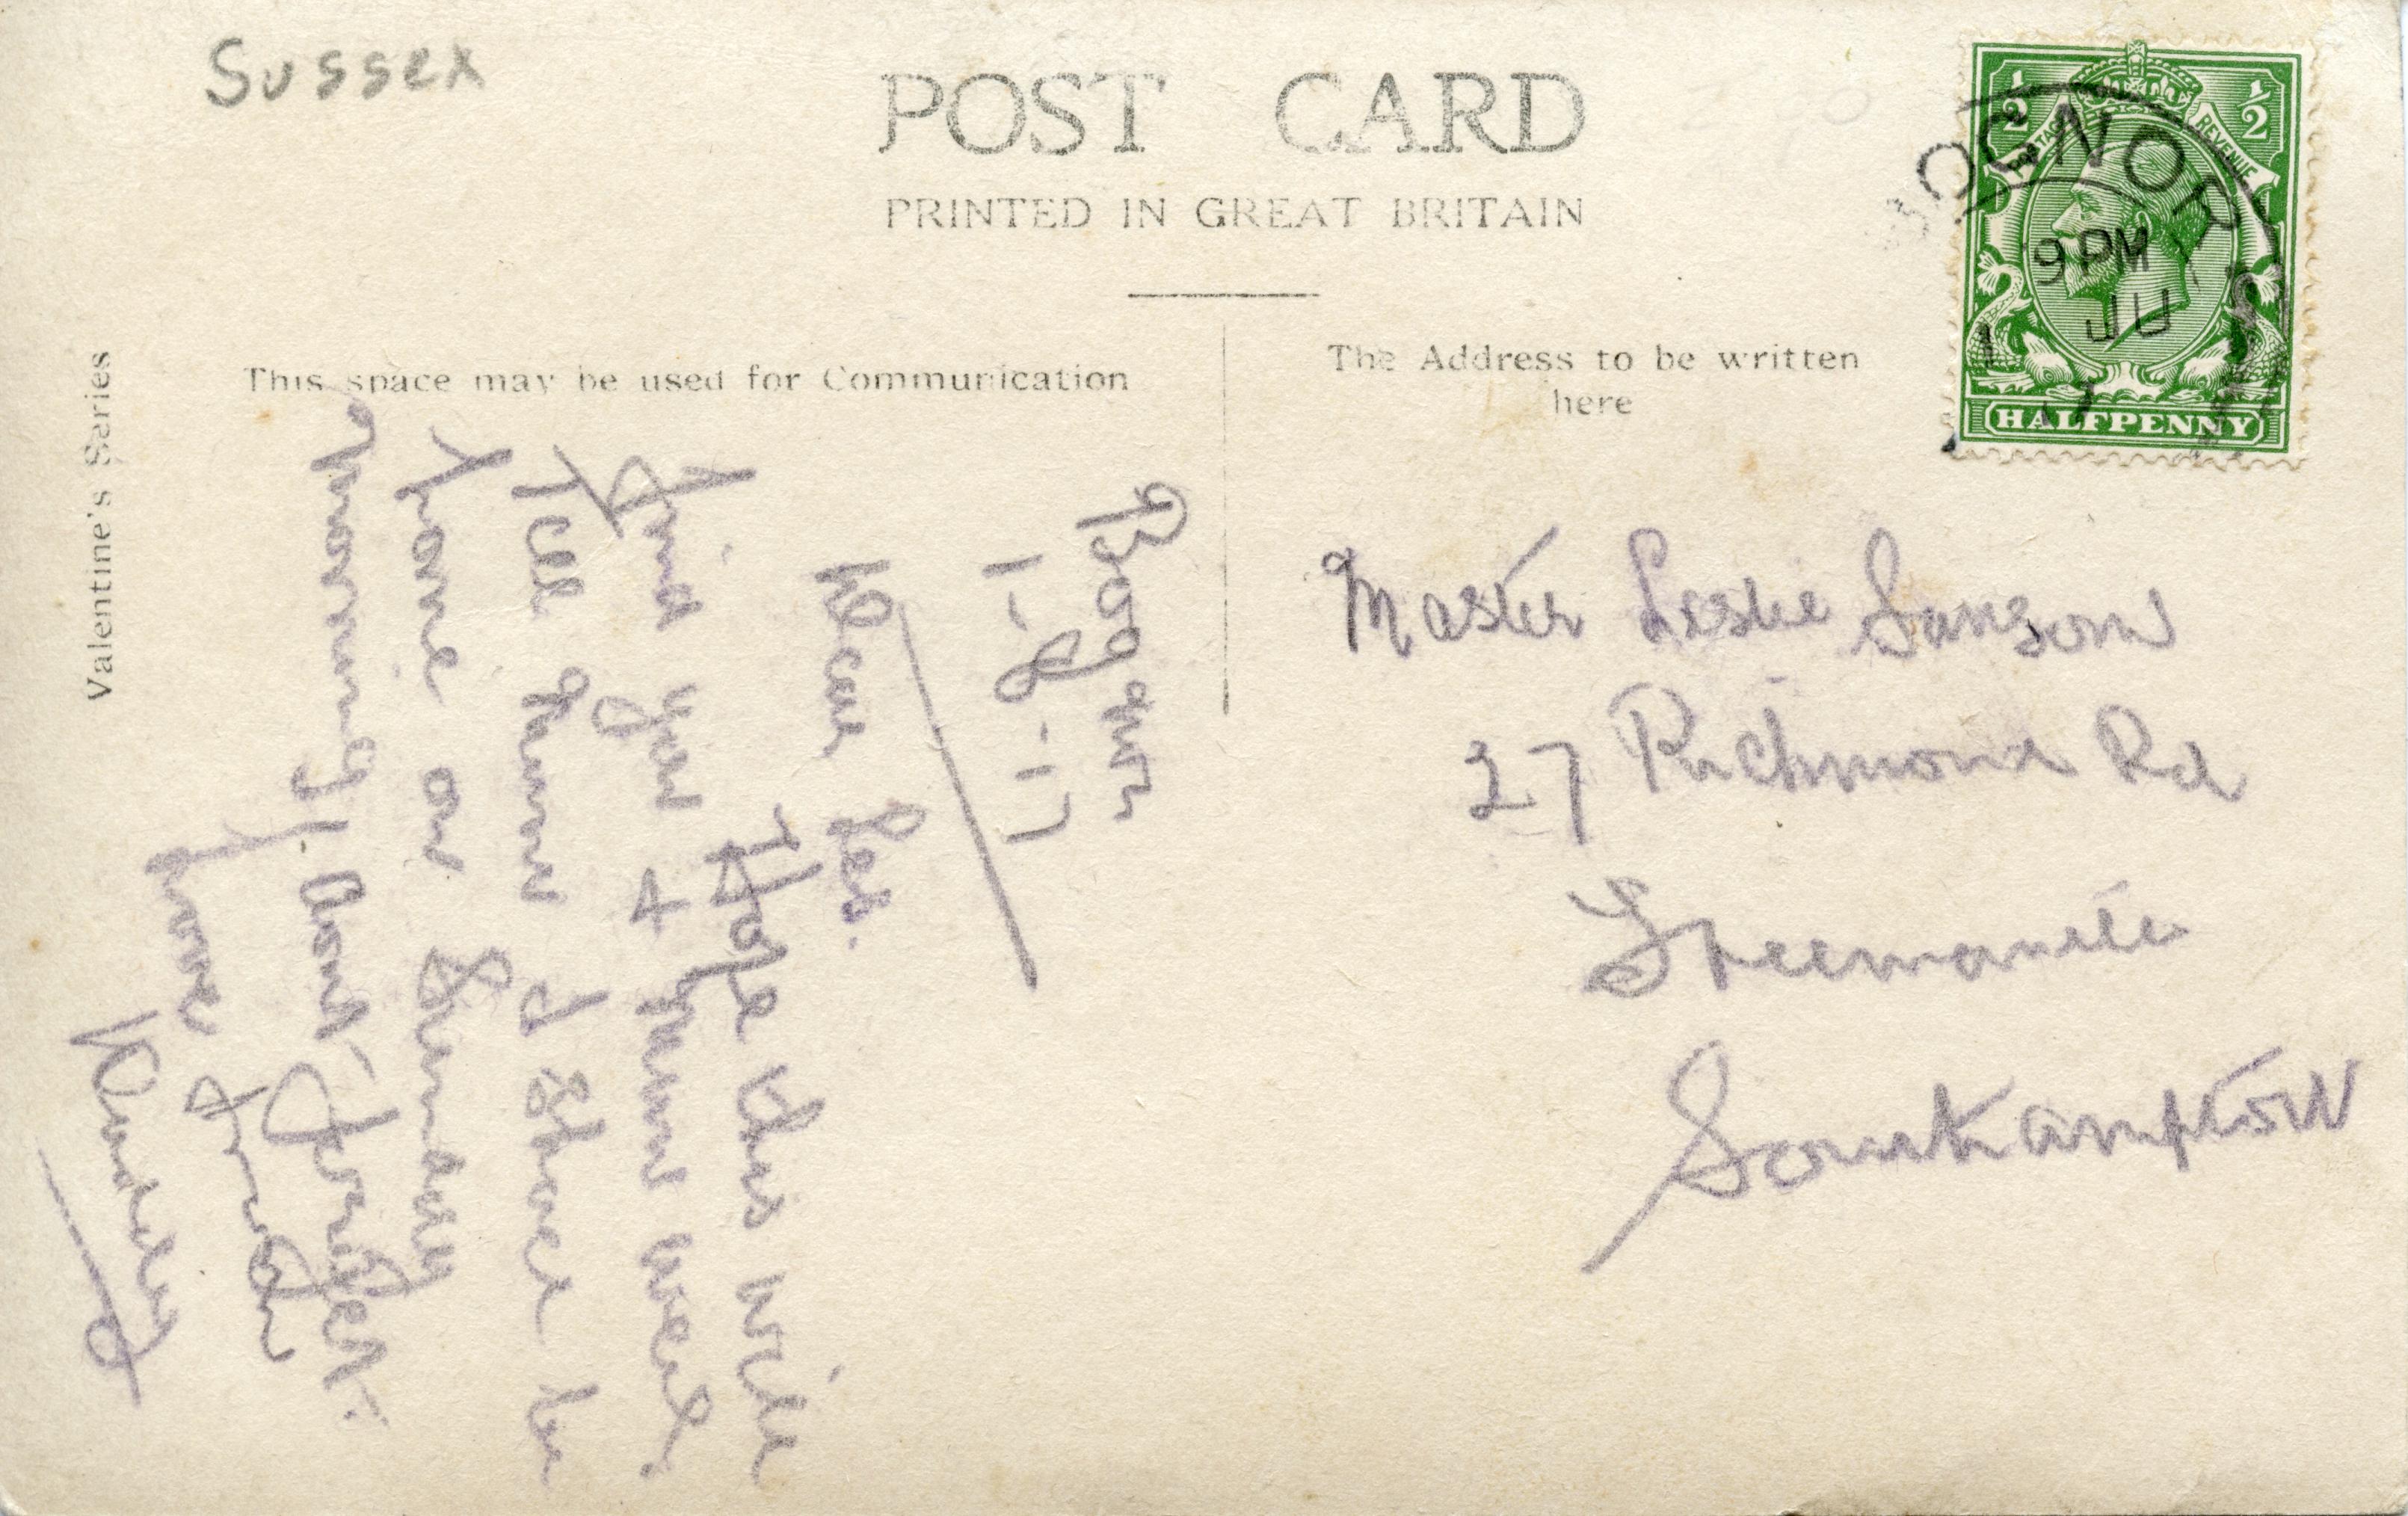 Sussex
POST CARD
PRINTED IN GREAT BRITAIN
Valentine's Series
This space may be used for Communication
The Address to be written
here
½ ½
POSTAGE REVENUE
HALFPENNY
BOGNOR
9 PM
JU
Bognor
1-8-17
Dear Les.
Hope this will
find you & Mum well.
Tell Mum I shall be
home on Sunday
morning. Dont forget.
love from
Master Leslie Sansom
27 Richmond Rd
Freemantle
Southampton